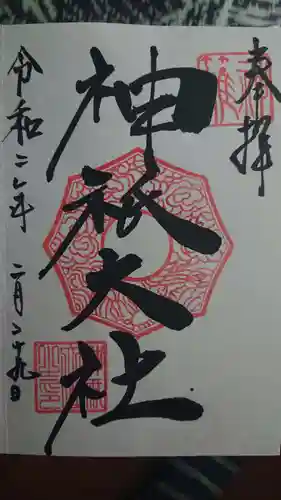 奉拝
神祇大社
令和二年二月二十九日